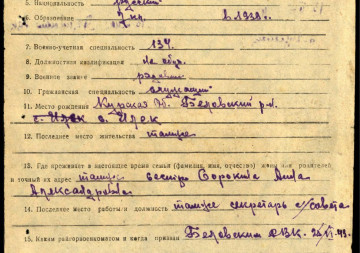 5. Национальность русский
6. Образование 7 кл. в 1939 г.
7. Военно-учетная специальность 134
8. Должностная квалификация не обуч.
9. Военное звание рядовой
10. Гражданская специальность служащий
11. Место рождения Курская Беловский р-н.
с. Илек
12. Последнее место жительства тамже
13. Где проживает в настоящее время семья (фамилия, имя, отчество) жены или родителей
и точный их адрес тамже сестра Сорокина Анна
Александровна
14. Последнее место работы и должность тамже секретарь с/совета
15. Каким райгорвоенкоматом и когда призван Беловским РВК. 43 г.